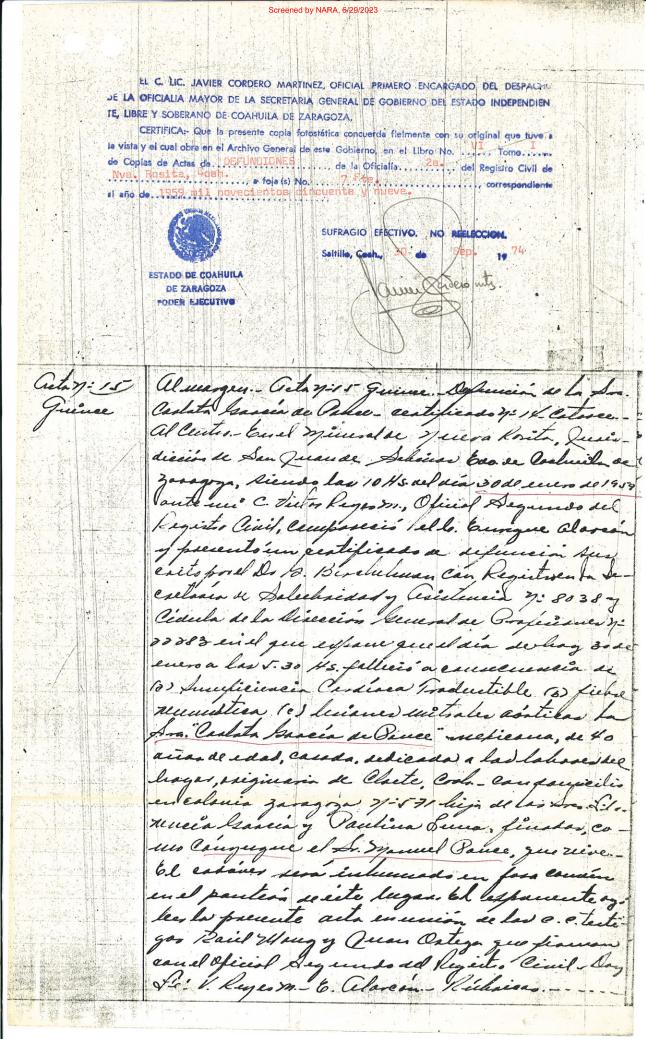 Screened by NARA, 6/29/2023
EL C. LIC. JAVIER CORDERO MARTINEZ, OFICIAL PRIMERO ENCARGADO DEL DESPACHO
DE LA OFICIALIA MAYOR DE LA SECRETARIA GENERAL DE GOBIERNO DEL ESTADO INDEPENDIEN
TE, LIBRE Y SOBERANO DE COAHUILA DE ZARAGOZA.
CERTIFICA:- Que la presente copia fotostática concuerda fielmente con su original que tuve a
la vista y el cual obra en el Archivo General de este Gobierno, en el Libro No. VI Tomo I
de Copias de Actas de DEFUNCIONES de la Oficialía 2a. del Registro Civil de
Nva. Rosita, Coah. a foja(s) No. 7 correspondiente
al año de 1959 mil novecientos cincuenta y nueve.
SUFRAGIO EFECTIVO. NO REELECCION.
Saltillo, Coah., 30 de Sep. 19 74
ESTADO DE COAHUILA
DE ZARAGOZA
PODER EJECUTIVO
Acta Nº 15
Quince
Al margen.- Acta Nº 15 Quince.- Defunción de la Sra.
Carlota García de Ponce.- certificado Nº 14 Catorce.-
Al Centro.- En el Mineral de Nueva Rosita, Juris-
dicción de San Juan de Sabinas Edo. de Coahuila de
Zaragoza, siendo las 10 Hs. del día 30 de enero de 1959
ante mi C. Victor Reyes M., Oficial Segundo del
Registro Civil, compareció el C. Enrique Alarcón
y presentó un certificado de defunción sus
crito por el Dr. con Registro en la Se-
cretaría de Salubridad y Asistencia Nº 8038 y
Cédula de la Dirección General de Profesiones Nº
22283 en el que expone que el día de hoy 30 de
enero a las 5.30 Hs. falleció a consecuencia de
(a) Insuficiencia Cardíaca (b) fiebre
reumática (c) lesiones mitrales aórticas la
Sra. "Carlota García de Ponce" mexicana, de 40
años de edad, casada, dedicada a las labores del
hogar, originaria de Cloete, Coah. con domicilio
en colonia Zaragoza Nº 571 hija de los Sres.
García y Paulina Luna, finados, co-
mo conyugue el Sr. Manuel Ponce, que vive.-
El cadáver será inhumado en fosa común
en el panteón de este lugar. El exponente
la presente acta en unión de los C.C. testi
gos Raúl y Juan Ortega que firman
con el Oficial Segundo del Registro Civil - Doy
Fé: V. Reyes M.- E. Alarcón - Rúbricas